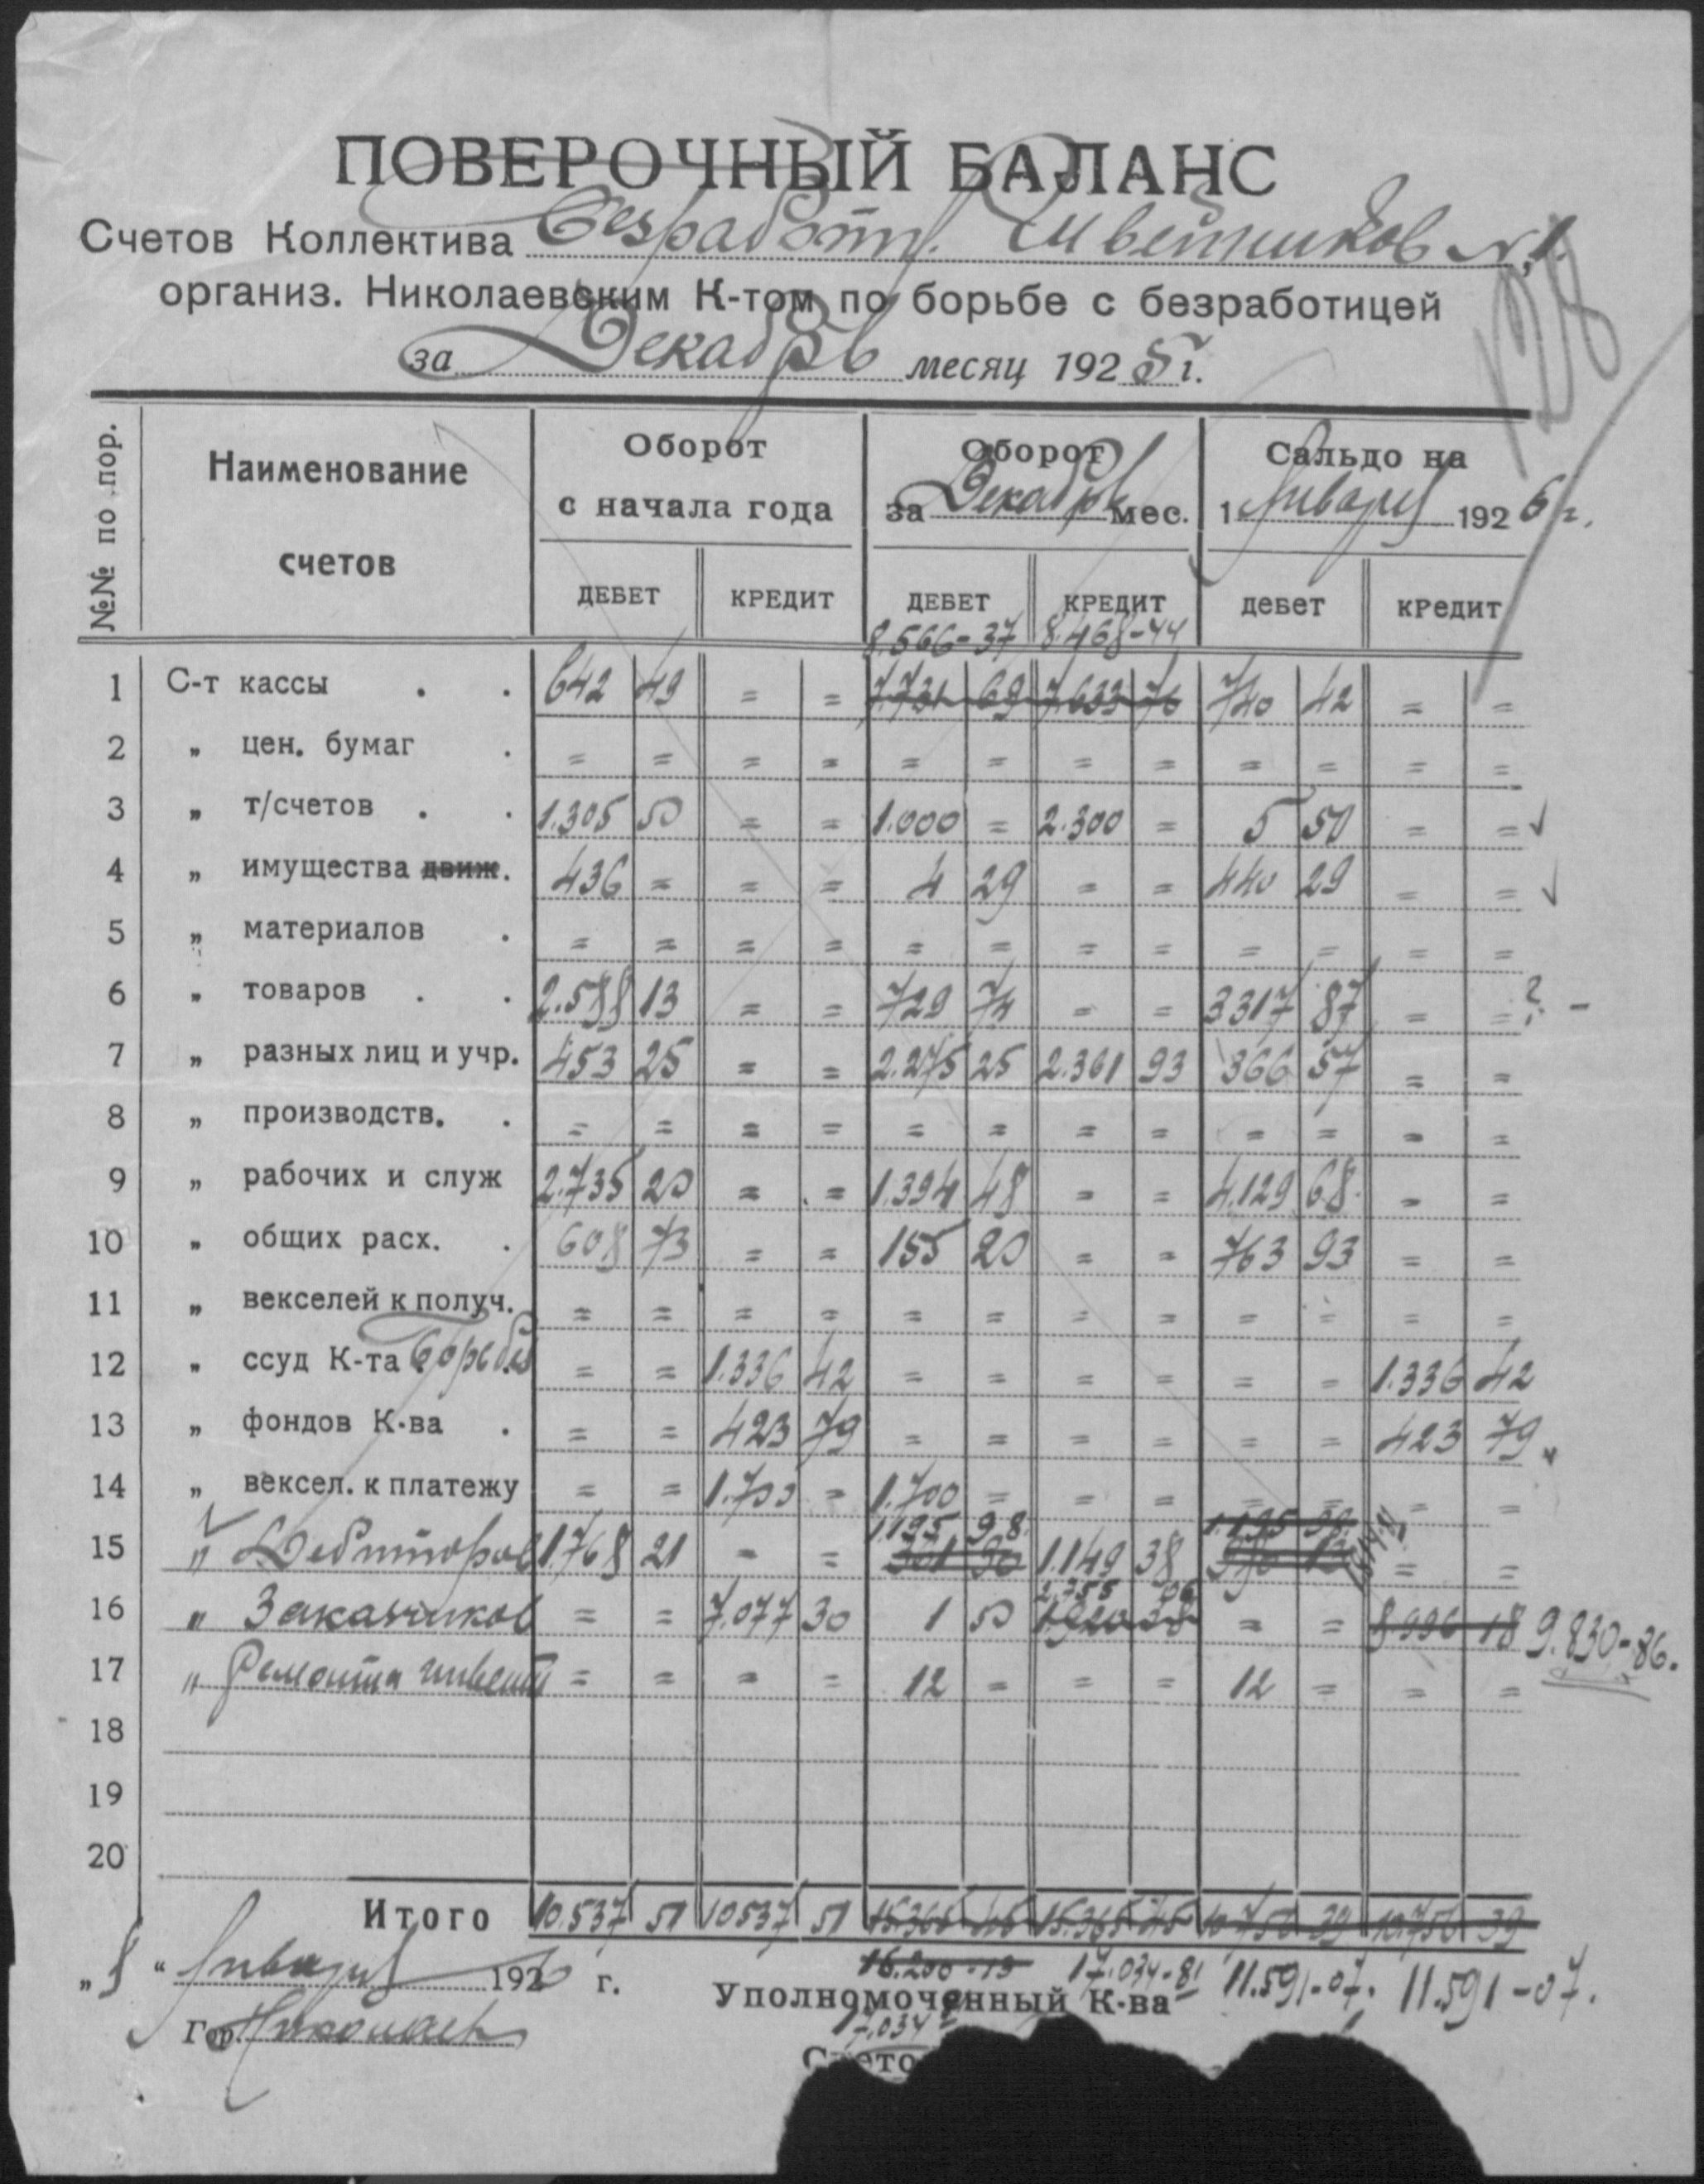 ПОВЕРОЧНЫЙ БАЛАНС
Счетов Коллектива безработн. Швейников № 1.
128
организ. Николаевским К-том по борьбе с безработицей
за Декабрь месяц 1925 г.
№№ по пор. Наименование счетов Оборот с начала года Оборот за Декабрь мес. Сальдо на 1 Января 1926 г.
ДЕБЕТ КРЕДИТ ДЕБЕТ КРЕДИТ ДЕБЕТ КРЕДИТ
8.566-37 8.468-44
1 С-т кассы . . 642 49 = = 7.731 69 7.633 76 740 42 = =
2 „ цен. бумаг . = = = = = = = = = = = =
3 „ т/счетов . . 1.305 50 = = 1.000 = 2.300 = 5 50 = = ✓
4 „ имущества движ. 436 = = = 4 29 = = 440 29 = = ✓
5 „ материалов . = = = = = = = = = = = =
6 „ товаров . . 2.588 13 = = 729 74 = = 3317 87 = = ? -
7 „ разных лиц и учр. 453 25 = = 2.275 25 2.361 93 366 57 = =
8 „ производств. . = = = = = = = = = = = =
9 „ рабочих и служ 2.735 20 = = 1.394 48 = = 4.129 68 = =
10 „ общих расх. . 608 73 = = 155 20 = = 763 93 = =
11 „ векселей к получ. = = = = = = = = = = = =
12 „ ссуд К-та = = 1.336 42 = = = = = = 1.336 42
13 „ фондов К-ва . = = 423 79 = = = = = = 423 79
14 „ вексел. к платежу = = 1.700 = 1.700 = = = = = = =
1.195 98 1.195 98
15 „ Дебиторов 1.768 21 = = 361 30 1.149 38 = =
2.755 06
16 „ Заказчиков = = 7.077 30 1 50 1.920 38 = = 8.996 18 9.830-86.
17 „ Ремонта инвент = = = = 12 = = = 12 = = =
18
19
20
Итого 10.537 51 10537 51 15.365 45 15.365 45 10.756 39 10.756 39
16.200-13 17.034-81 11.591-07. 11.591-07.
„1“ Января 1926 г.
Уполномоченный К-ва
Гор. Николаев
17.034
Счето